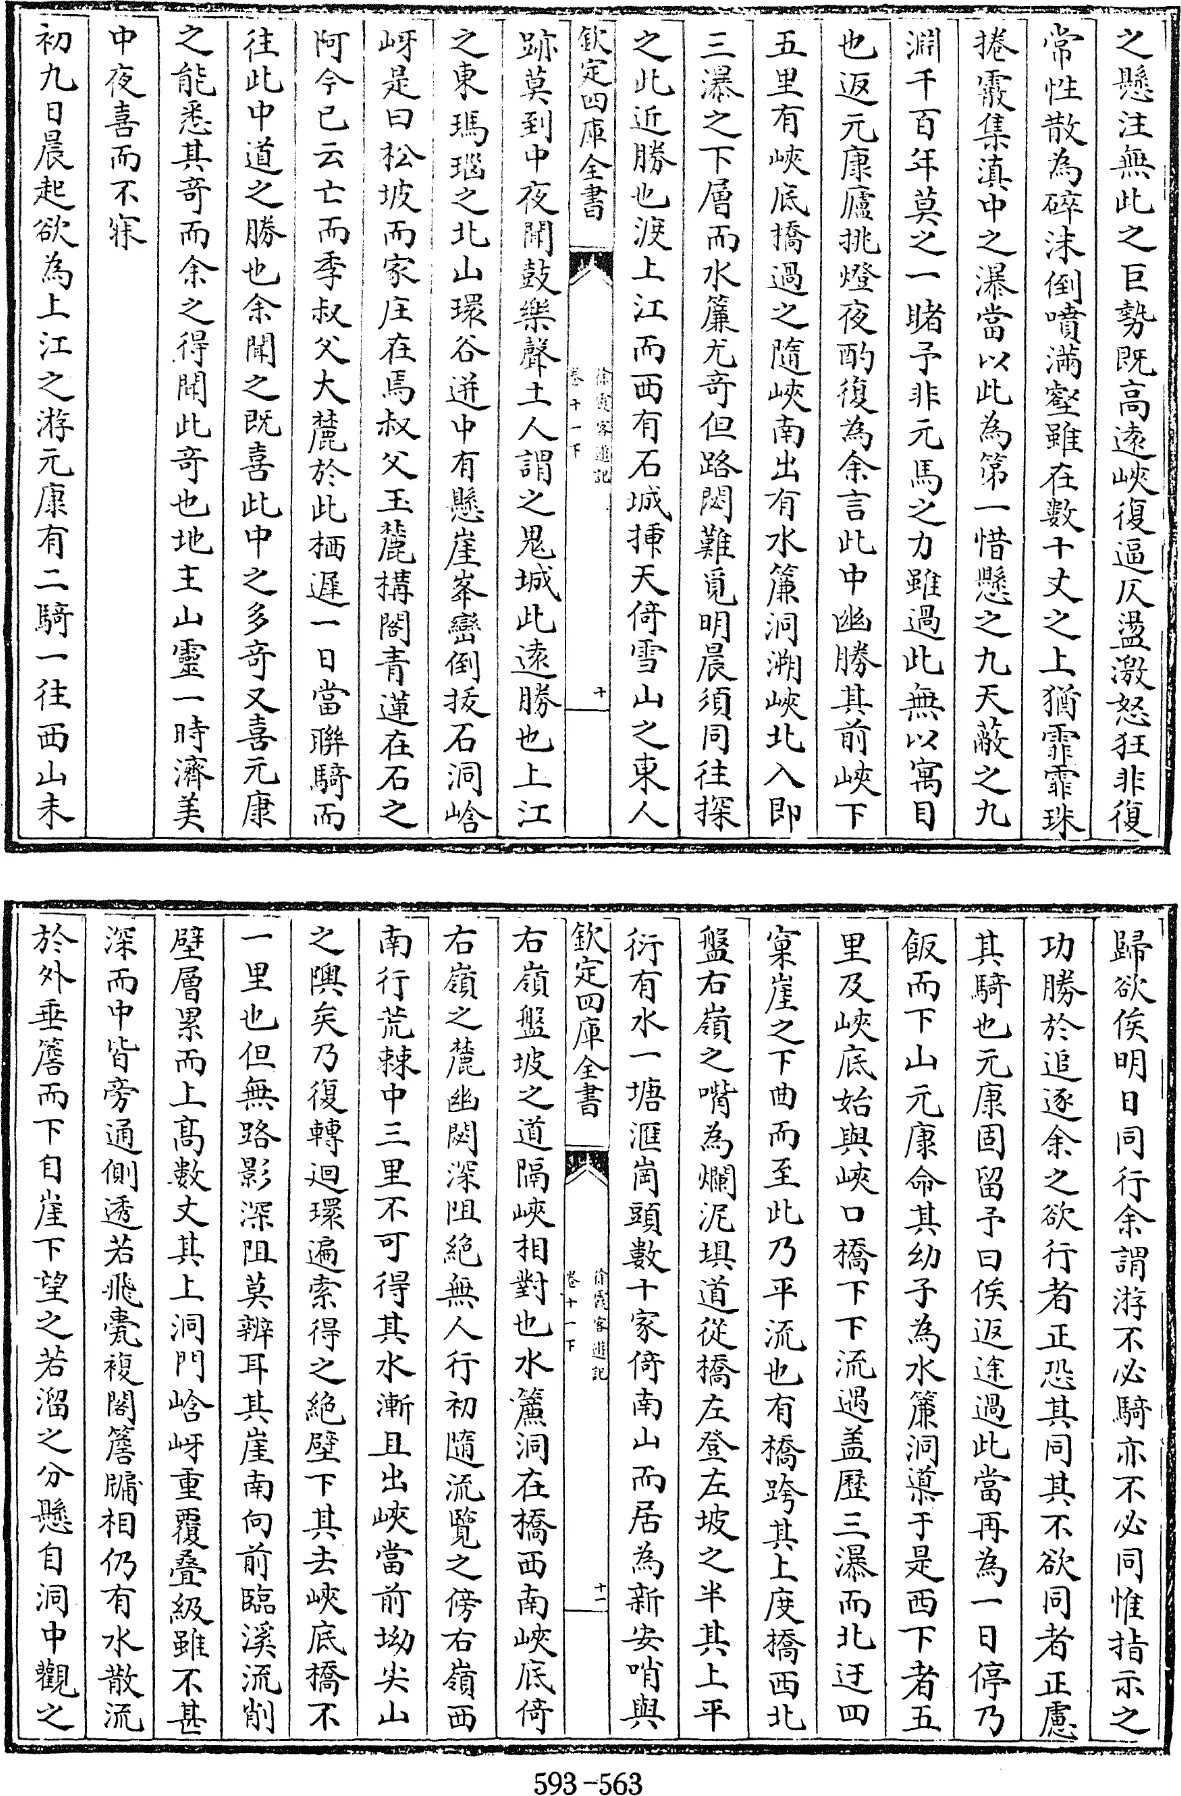 之懸注無此之巨勢既高遠峽復逼仄盪激怒狂非復
常性散為碎沫倒噴滿壑雖在數十丈之上猶霏霏珠
捲霰集滇中之瀑當以此為第一惜懸之九天蔽之九
淵千百年莫之一睹予非元馬之力雖過此無以寓目
也返元康廬挑燈夜酌復為余言此中幽勝其前峽下
五里有峽底橋過之隨峽南出有水簾洞溯峽北入即
三瀑之下層而水簾尤奇但路閟難覓明晨須同往探
之此近勝也渡上江而西有石城揷天倚雪山之東人
欽定四庫全書
徐霞客遊記
卷十一下
十
跡莫到中夜聞鼓樂聲土人謂之鬼城此遠勝也上江
之東瑪瑙之北山環谷迸中有懸崖峯巒倒拔石洞㟏
岈是曰松坡而家庄在馬叔父玉麓構閣青蓮在石之
阿今已云亡而季叔父大麓於此栖遲一日當聯騎而
往此中道之勝也余聞之既喜此中之多奇又喜元康
之能悉其奇而余之得聞此奇也地主山靈一時濟美
中夜喜而不寐
初九日晨起欲為上江之游元康有二騎一往西山未
歸欲俟明日同行余謂游不必騎亦不必同惟指示之
功勝於追逐余之欲行者正恐其同其不欲同者正慮
其騎也元康固留予曰俟返途過此當再為一日停乃
飯而下山元康命其幼子為水簾洞導于是西下者五
里及峽底始與峽口橋下下流遇盖歷三瀑而北迂四
窠崖之下曲而至此乃平流也有橋跨其上度橋西北
盤右嶺之嘴為爛泥埧道從橋左登左坡之半其上平
衍有水一塘滙崗頭數十家倚南山而居為新安哨與
欽定四庫全書
徐霞客遊記
卷十一下
十一
右嶺盤坡之道隔峽相對也水簾洞在橋西南峽底倚
右嶺之麓幽閟深阻絕無人行初隨流覽之傍右嶺西
南行荒棘中三里不可得其水漸且出峽當前坳尖山
之隩矣乃復轉迴環遍索得之絕壁下其去峽底橋不
一里也但無路影深阻莫辨耳其崖南向前臨溪流削
壁層累而上高數丈其上洞門㟏岈重覆叠綴雖不甚
深而中皆旁通側透若飛甍複閣簷牖相仍有水散流
於外垂簷而下自崖下望之若溜之分懸自洞中觀之
593-563